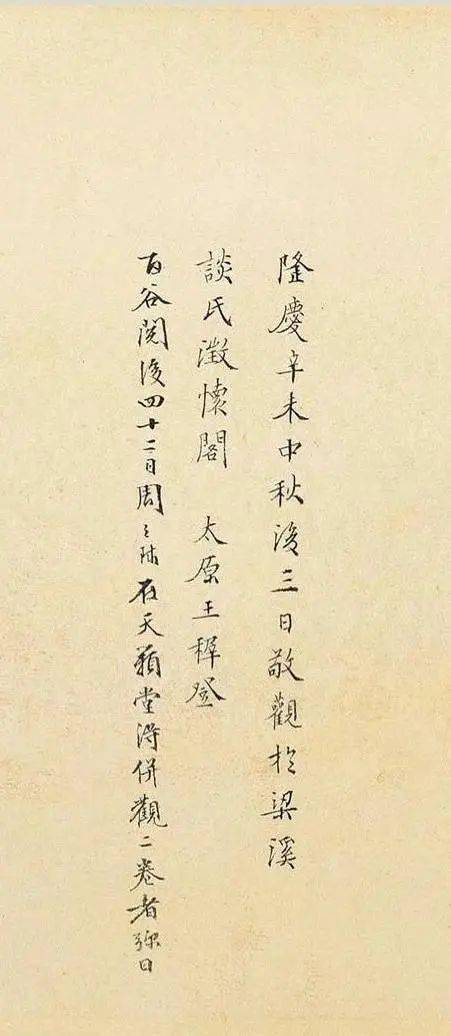 隆慶辛未中秋後三日敬觀於梁溪
談氏澂懷閣　太原王穉登
百谷閱後四十二日周之球在天籟堂得併觀二卷者弥日